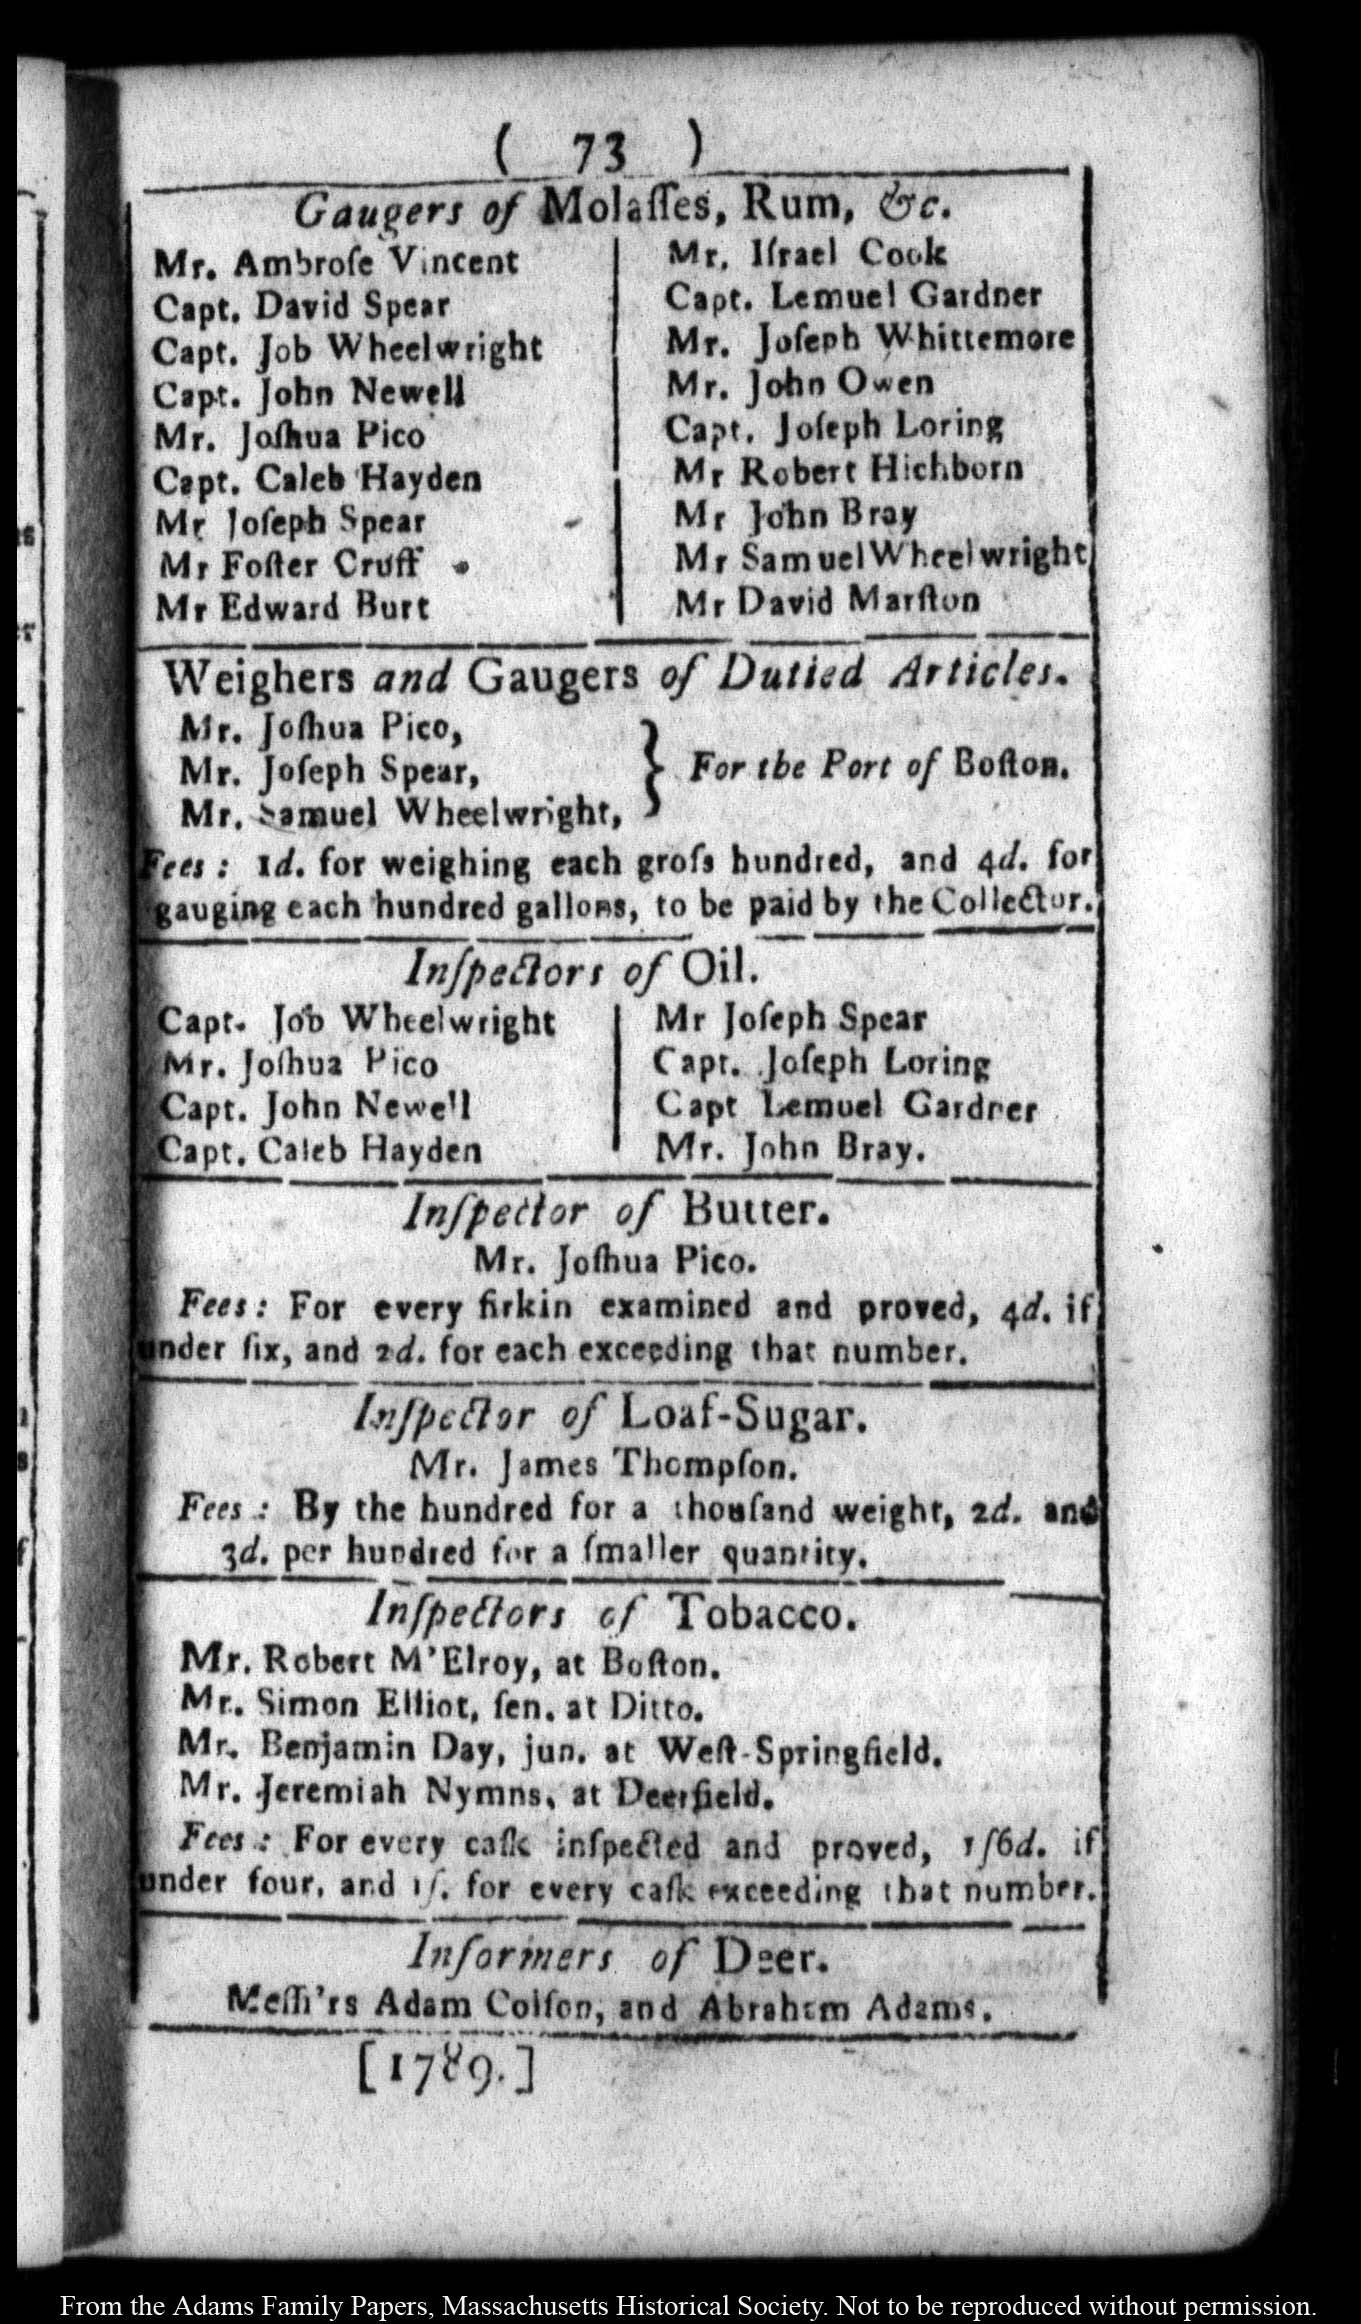 ( 73 )
Gaugers of Molaſſes, Rum, &c.
Mr. Ambroſe Vincent
Capt. David Spear
Capt. Job Wheelwright
Capt. John Newell
Mr. Joſhua Pico
Capt. Caleb Hayden
Mr Joſeph Spear
Mr Foſter Cruff
Mr Edward Burt
Mr. Iſrael Cook
Capt. Lemuel Gardner
Mr. Joſeph Whittemore
Mr. John Owen
Capt. Joſeph Loring
Mr Robert Hichborn
Mr John Bray
Mr Samuel Wheelwright
Mr David Marſton
Weighers and Gaugers of Dutied Articles.
Mr. Joſhua Pico,
Mr. Joſeph Spear,
Mr. Samuel Wheelwright,
} For the Port of Boſton.
Fees : 1d. for weighing each groſs hundred, and 4d. for
gauging each hundred gallons, to be paid by the Collector.
Inſpectors of Oil.
Capt. Job Wheelwright
Mr. Joſhua Pico
Capt. John Newell
Capt. Caleb Hayden
Mr Joſeph Spear
Capt. Joſeph Loring
Capt Lemuel Gardner
Mr. John Bray.
Inſpector of Butter.
Mr. Joſhua Pico.
Fees : For every firkin examined and proved, 4d. if
under ſix, and 2d. for each exceeding that number.
Inſpector of Loaf-Sugar.
Mr. James Thompſon.
Fees : By the hundred for a thouſand weight, 2d. and
3d. per hundred for a ſmaller quantity.
Inſpectors of Tobacco.
Mr. Robert M'Elroy, at Boſton.
Mr. Simon Elliot, ſen. at Ditto.
Mr. Benjamin Day, jun. at Weſt-Springfield.
Mr. Jeremiah Nymns, at Deerfield.
Fees : For every caſk inſpected and proved, 1ſ6d. if
under four, and 1ſ. for every caſk exceeding that number.
Informers of Deer.
Meſſ'rs Adam Colſon, and Abraham Adams.
[1789.]
From the Adams Family Papers, Massachusetts Historical Society. Not to be reproduced without permission.